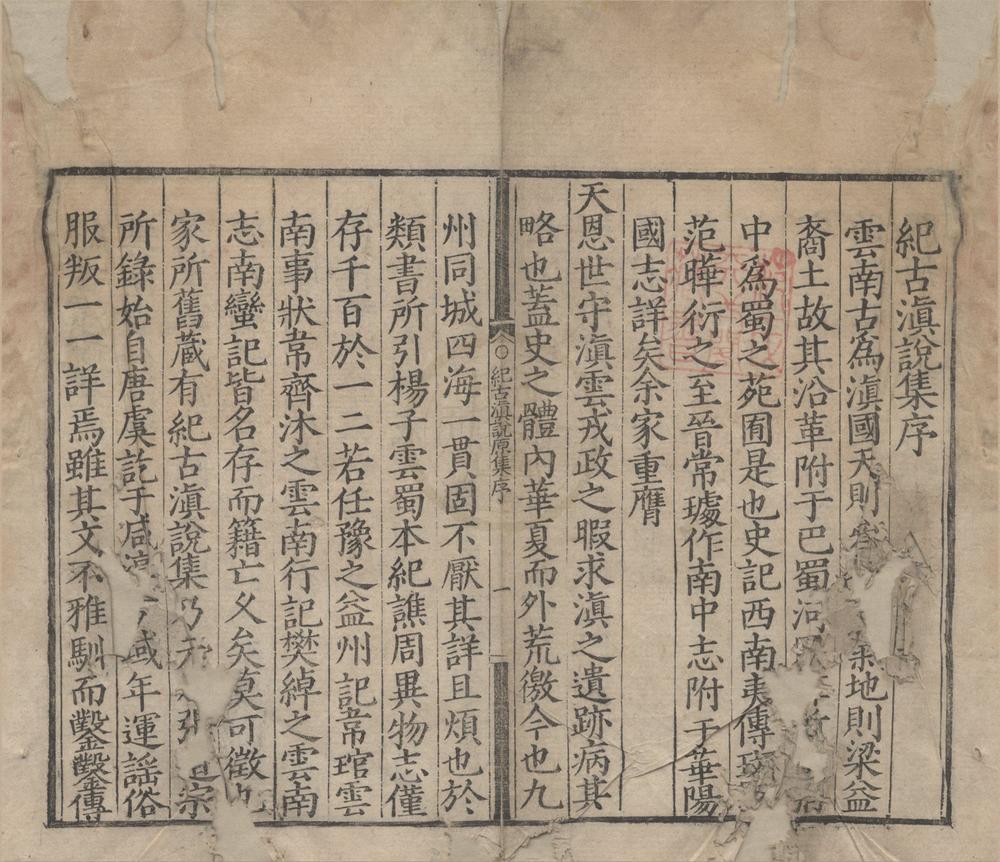 紀古滇說集序
雲南古爲滇國天則地則梁益
裔土故其沿革附于巴蜀
中爲蜀之苑囿是也史記西南夷傳
范曄衍之至晉常璩作南中志附于華陽
國志詳矣余家重膺
天恩世守滇雲戎政之暇求滇之遺跡病其
略也蓋史之體內華夏而外荒徼今也九
紀古滇說原集序
一
州同城四海一貫固不厭其詳且煩也於
類書所引楊子雲蜀本紀譙周異物志僅
存千百於一二若任豫之益州記韋琯雲
南事狀韋齊沐之雲南行記樊綽之雲南
志南蠻記皆名存而籍亡久矣莫可徵也
家所舊蔵有紀古滇說集乃宗
所錄始自唐虞訖于咸域年運謡俗
服叛一一詳焉雖其文不雅馴而鑿鑿傳